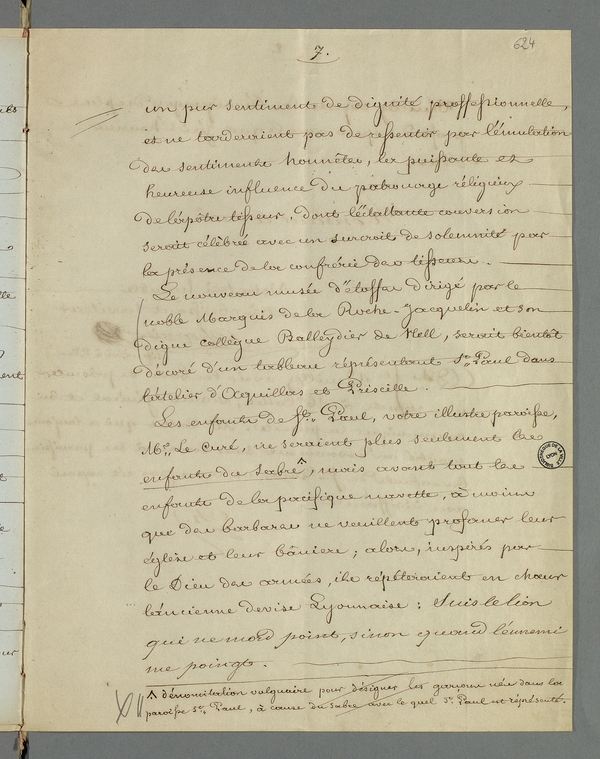 7.
624
un pur sentiment de dignité proffessionnelle,
et ne tarderaient pas de ressentir par l'émulation
des sentiments honnêtes, la puissante et
heureuse influence du patronage réligieux
de l'apôtre tisseur, dont l'éclattante conversion
serait célébrée avec un surcroit de solemnité par
la présence de la confrérie des tisseurs.
Le nouveau musée d'étoffes dirigé par le
noble Marquis de la Roche-Jacquelin et son
digne collègue Balleydier de Hell, serait bientôt
décoré d'un tableau réprésentant St. Paul dans
l'atelier d'Aquillas et Priscille.
Les enfants de St. Paul, votre illustre paroisse,
Mr. Le Curé, ne seraient plus seulement les
enfants du sabre ^, mais avant tout les
enfants de la pacifique navette, à moins
que des barbares ne veuillent profaner leur
église et leur bâniere; alors, inspirés par
le Dieu des armées, ils répèteraient en chœur
l'ancienne devise Lyonnaise: Suis le lion
qui ne mord point, sinon quand l'ennemi
me poingt.
^ dénomination vulguaire pour désigner les garçons nés dans la
paroisse St. Paul, à cause du sabre avec le quel St. Paul est réprésenté.
BIBLIOTHEQUE DE LA VILLE LYON